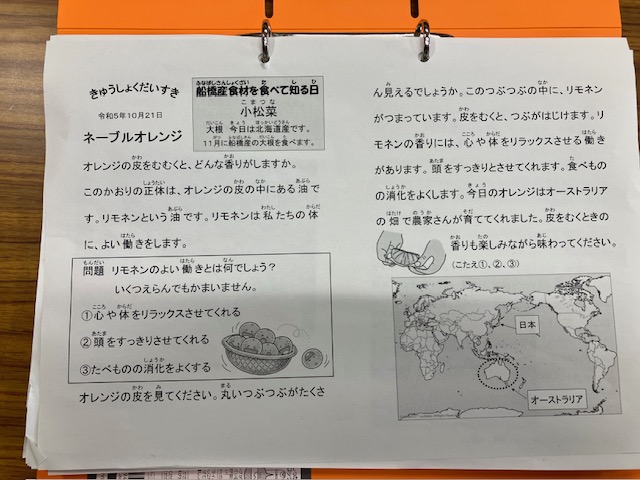 きゅうしょくだいすき
令和5年10月21日
ネーブルオレンジ
船橋産食材を食べて知る日
小松菜
大根 今日は北海道産です。
11月に船橋産の大根を食べます。
オレンジの皮をむむくと、どんな香りがしますか。
このかおりの正体は、オレンジの皮の中にある油で
す。リモネンという油です。リモネンは私たちの体
に、よい働きをします。
問題 リモネンのよい働きとは何でしょう?
いくつえらんでもかまいません。
①心や体をリラックスさせてくれる
②頭をすっきりとさせてくれる
③たべものの消化をよくする
オレンジの皮を見てください。丸いつぶつぶがたくさ
ん見えるでしょうか。このつぶつぶの中に、リモネン
がつまっています。皮をむくと、つぶがはじけます。リ
モネンの香りには、心や体をリラックスさせる働き
があります。頭をすっきりとさせてくれます。食べもの
の消化をよくします。今日のオレンジはオーストラリア
の畑で農家さんが育ててくれました。皮をむくときの
香りも楽しみながら味わってください。
(こたえ①、②、③)
日本
オーストラリア